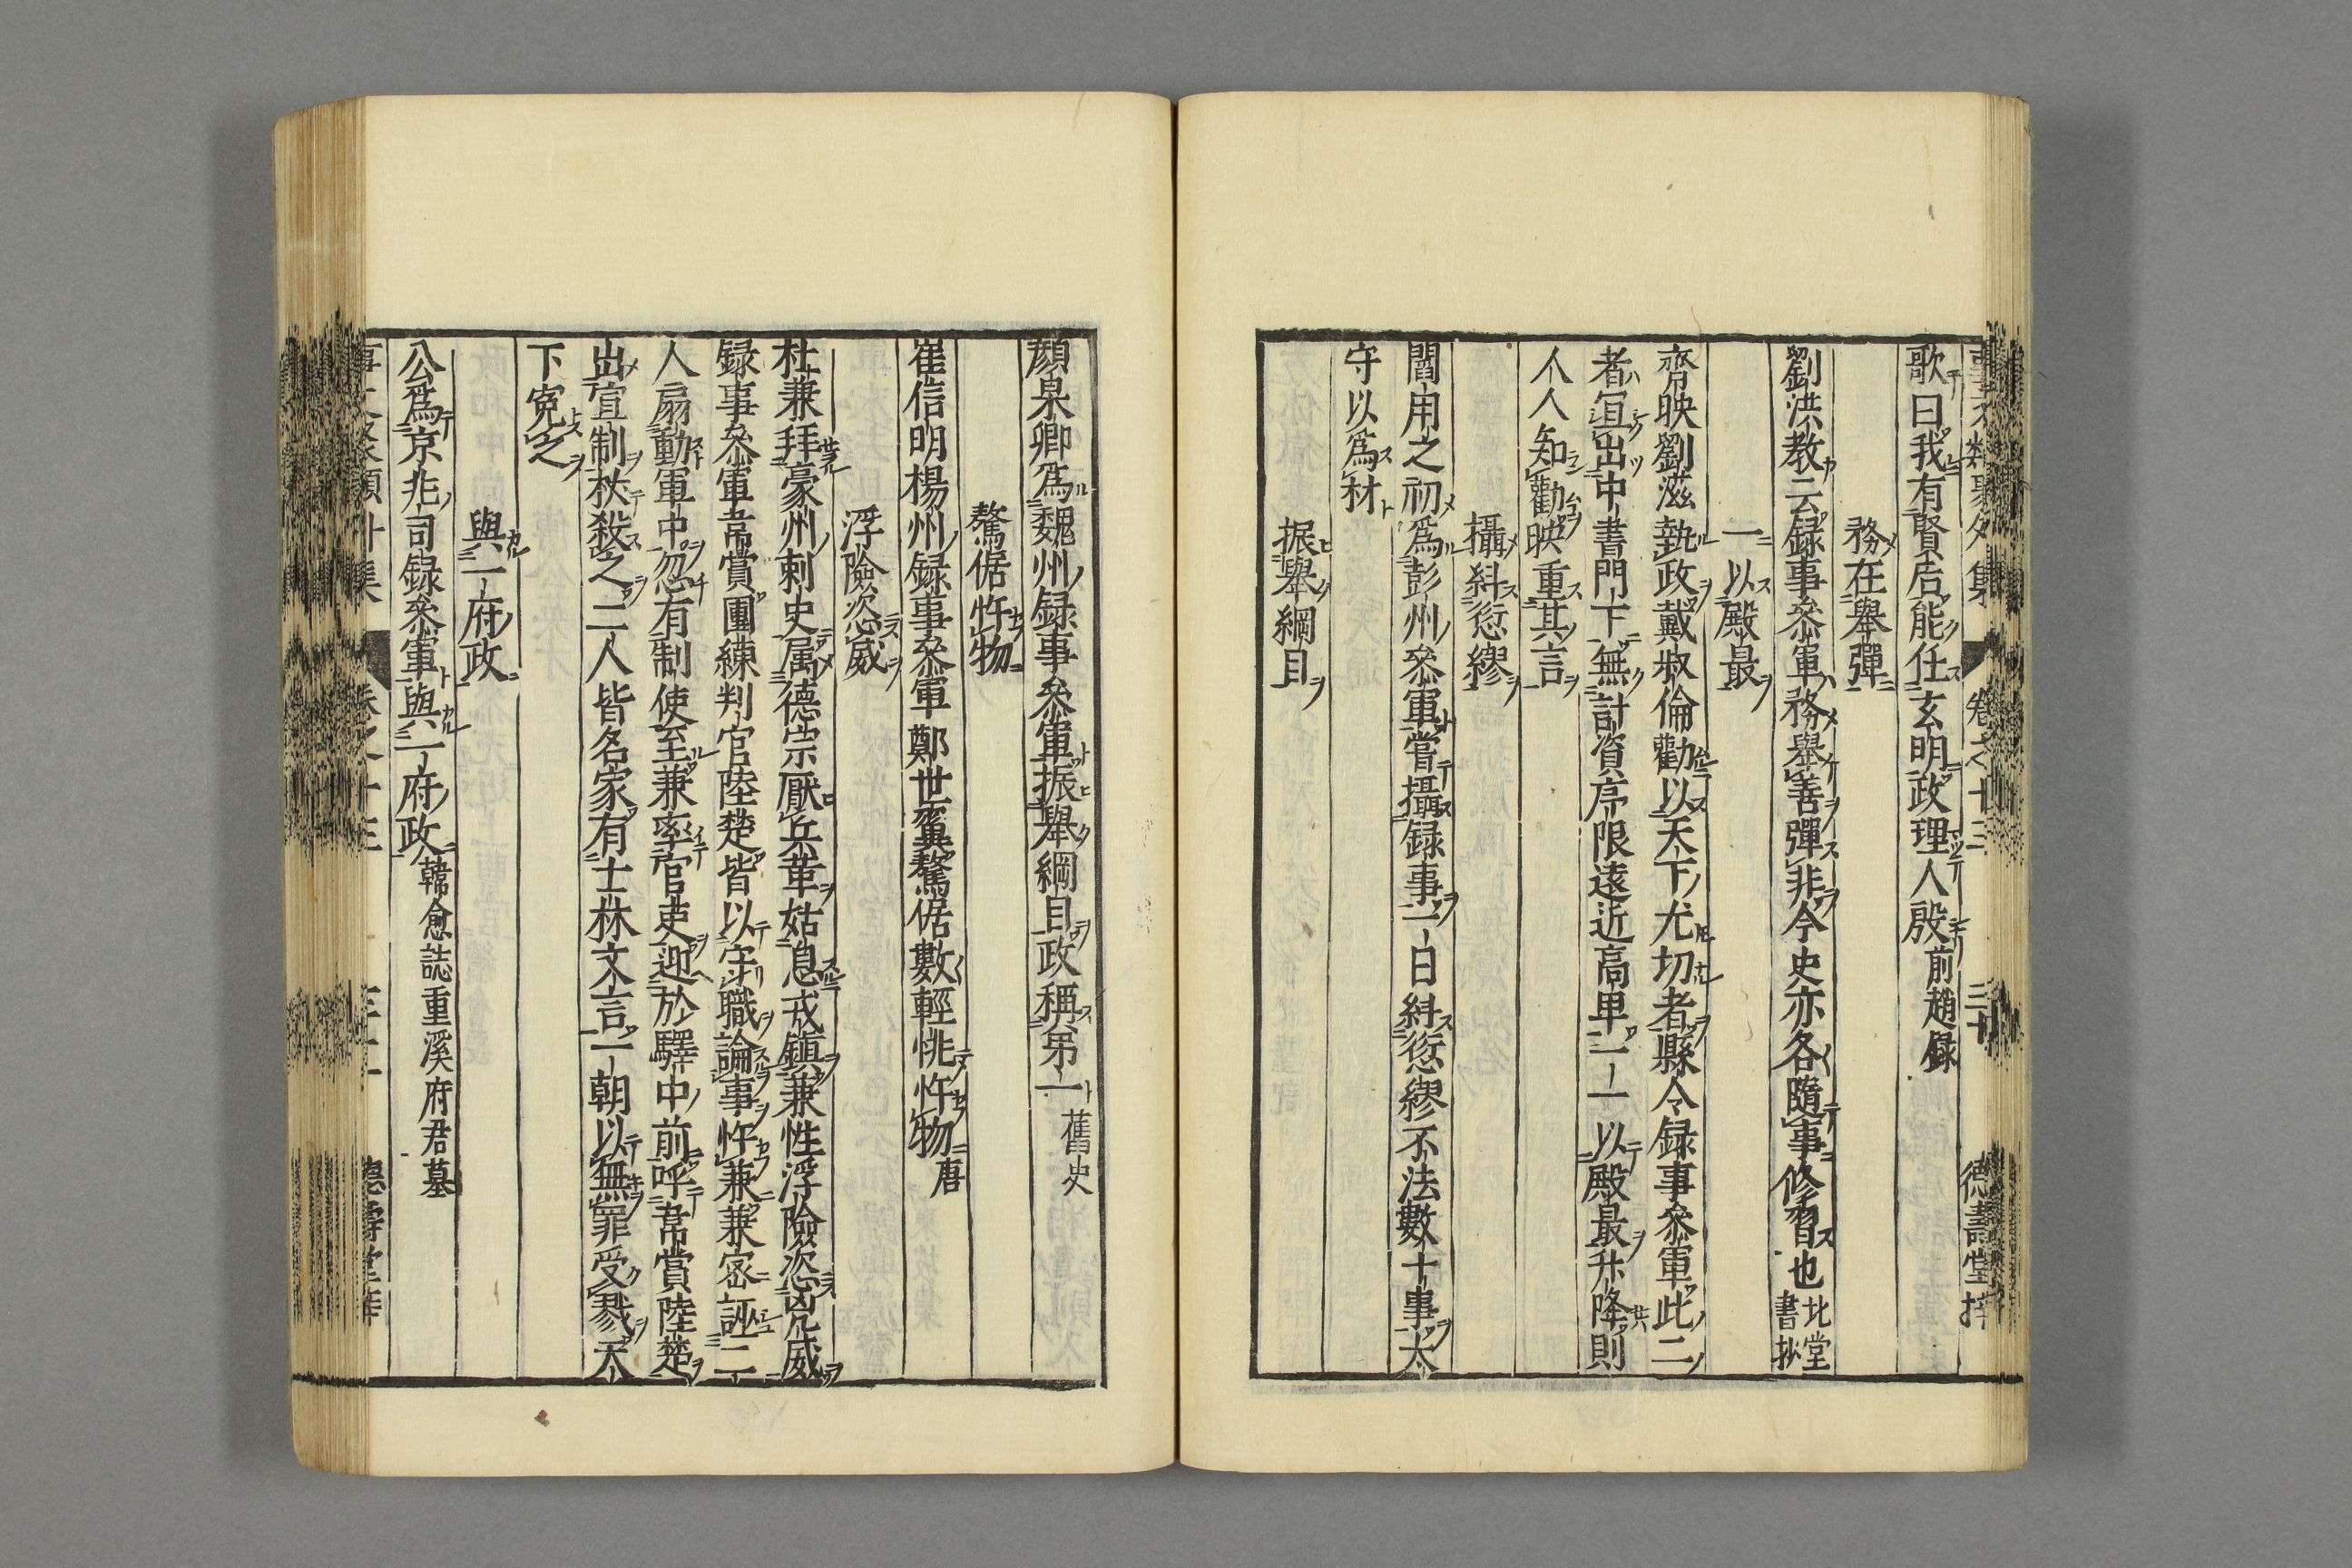 事文類聚外集 卷之十三 三十 德壽堂梓
歌曰我有賢后能任玄明政理人殷前趙錄
務在舉彈
劉洪教云録事叅軍務舉善彈非今史亦各隨事修習也北堂書抄
一以殿最
齊映劉滋執政戴叔倫勸以天下尤切者縣令録事叅軍此二
者冝出中書門下無計資序限遠近高卑一一以殿最升降則
人人知勸映重其言
攝紏愆繆
閻用之初爲彭州叅軍嘗攝録事一日紏愆繆不法數十事太
守以爲材
振舉綱目
顔杲卿爲魏州録事叅軍振舉綱目政稱第一舊史
驁倨忤物
崔信明楊州録事叅軍鄭世翼驁倨數輕恌忤物唐
浮險恣威
杜兼拜豪州刺史属德宗厭兵革姑息戎鎮兼性浮險恣凶威
録事叅軍韋賞團練判官陸楚皆以守職論事忤兼兼密誣二
人扇動軍中忽有制使至兼率官吏迎於驛中前呼韋賞陸楚
出宣制杖殺之二人皆名家有士林文言一朝以無罪受戮天
下寃之
與一府政
公爲京兆司録叅軍與一府政韓愈誌重溪府君墓